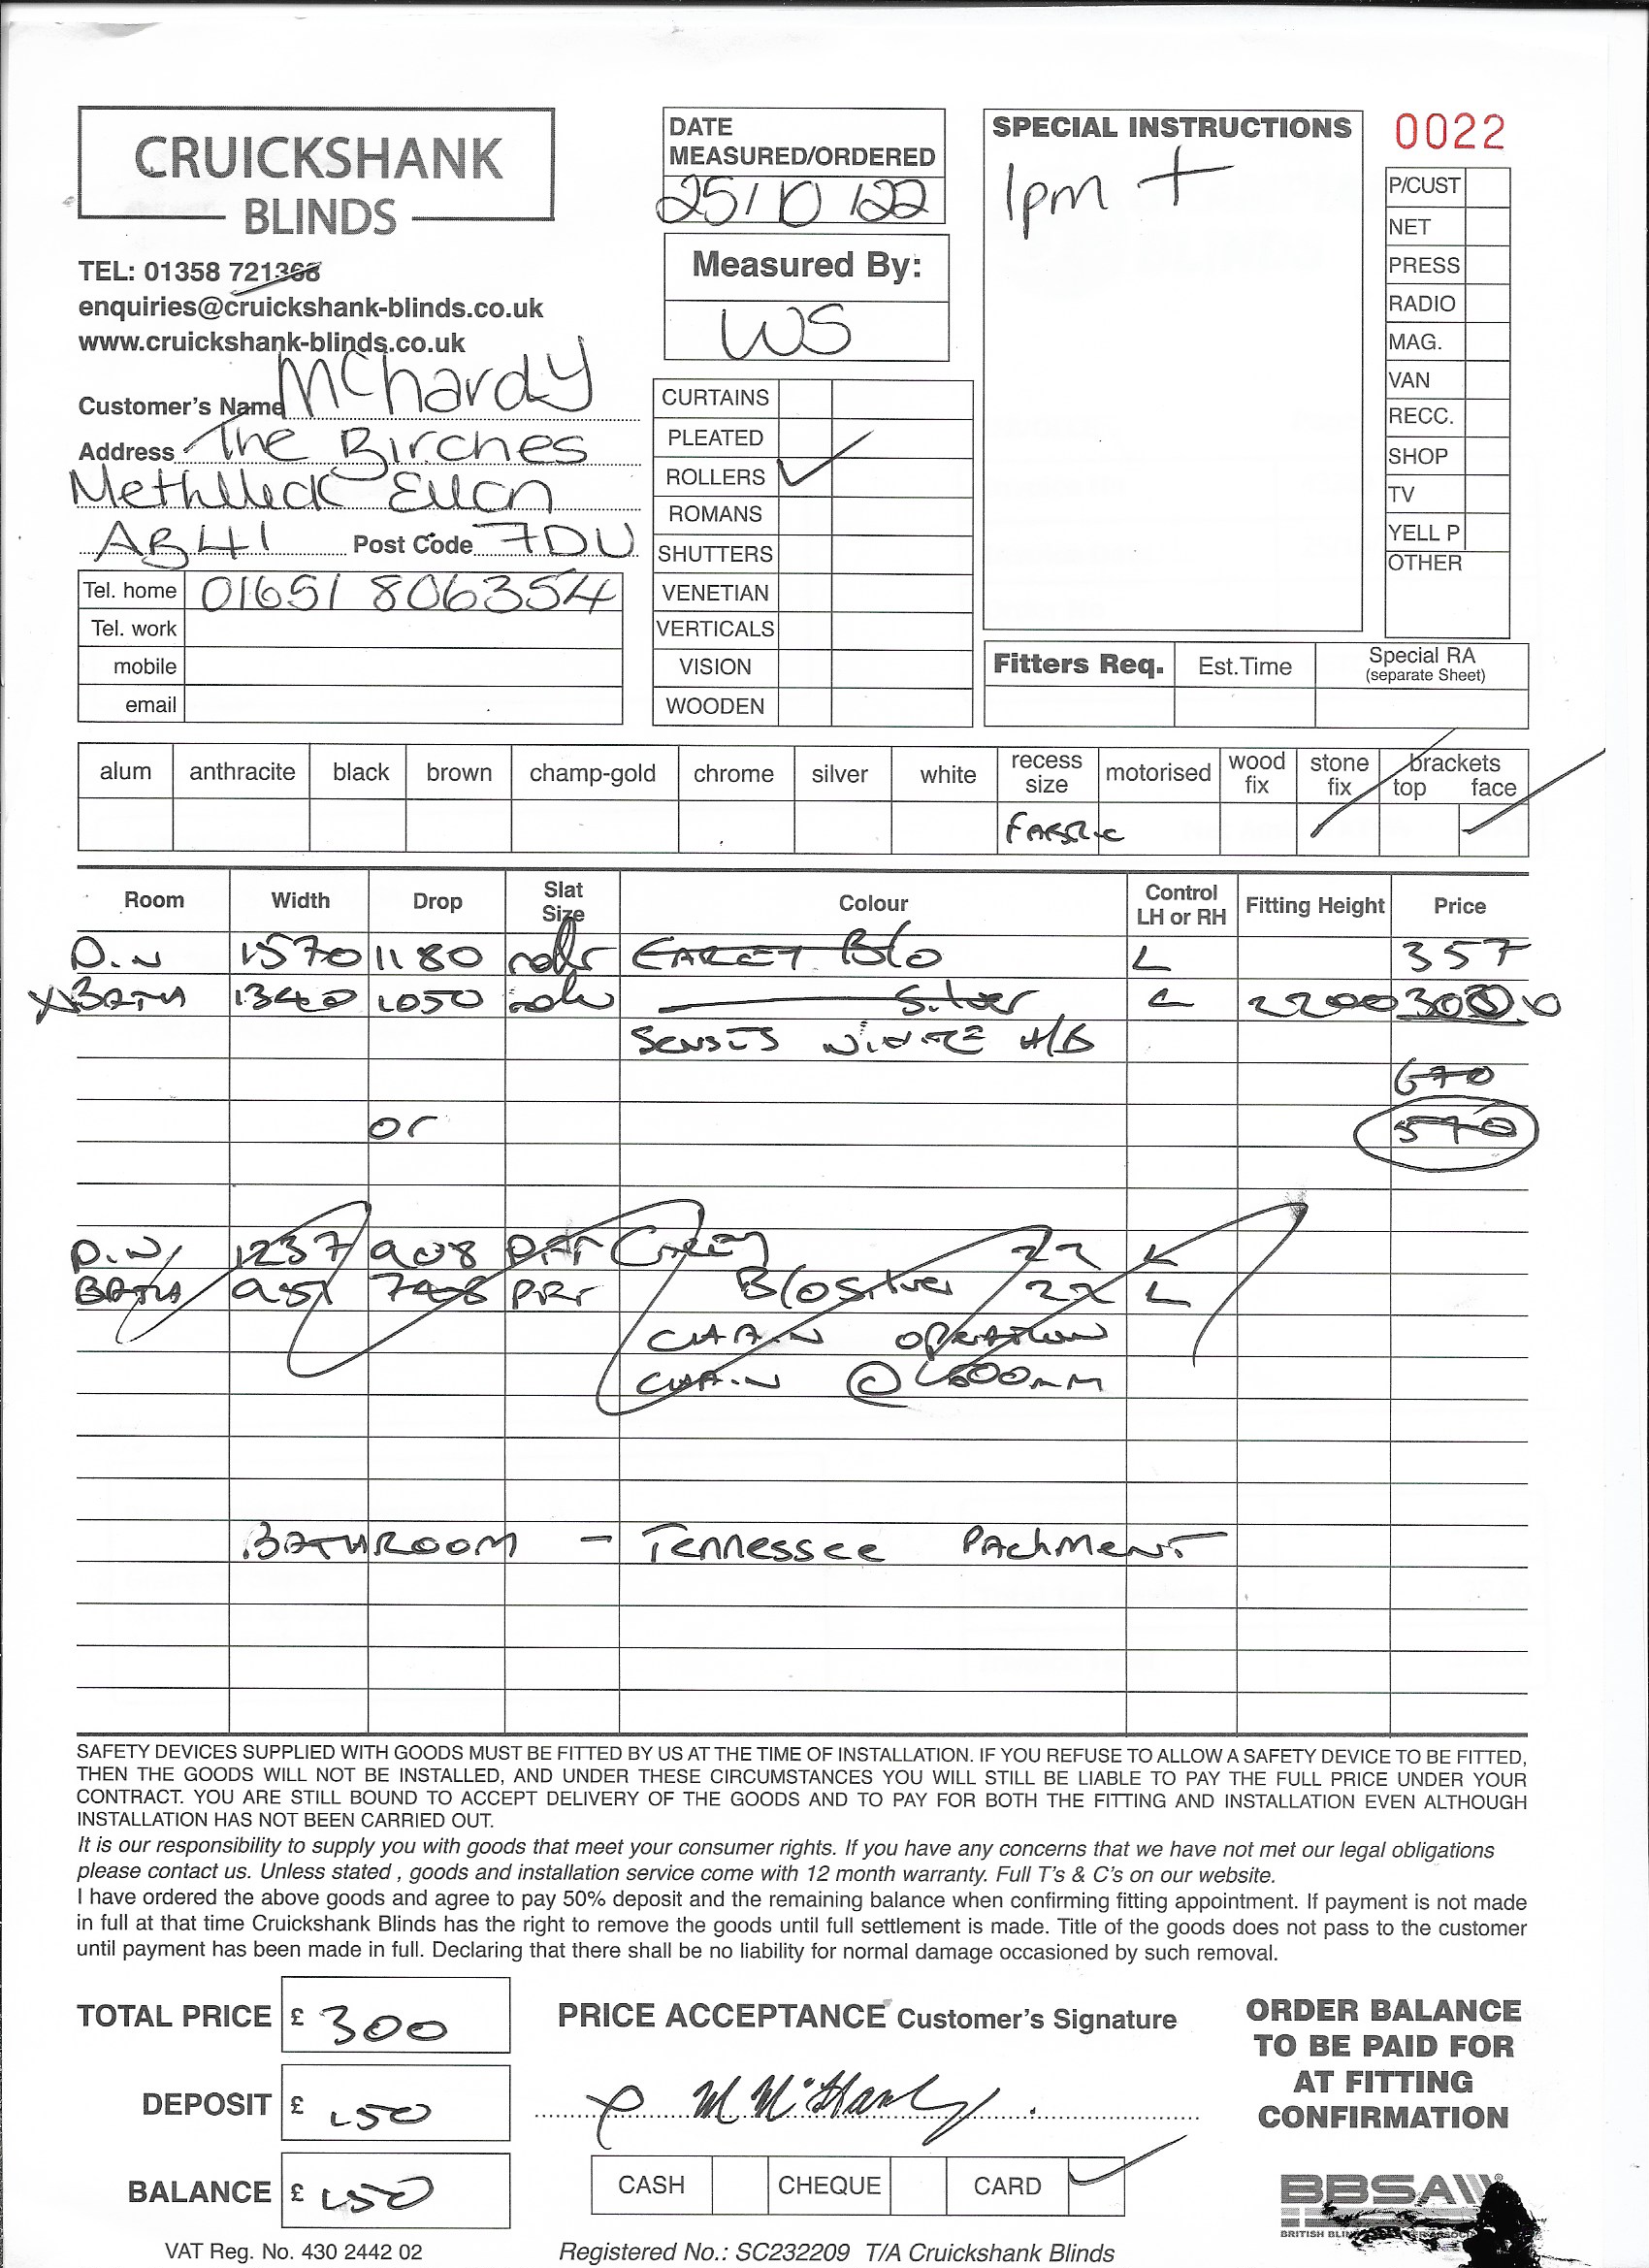 CRUICKSHANK
BLINDS
TEL: 01358 721368
enquiries@cruickshank-blinds.co.uk
www.cruickshank-blinds.co.uk
Customer's Name McHardy
Address The Birches
Methlick Ellon
AB41 Post Code 7DU
Tel. home 01651 806354
Tel. work
mobile
email
DATE
MEASURED/ORDERED
25/10/22
Measured By:
WS
CURTAINS
PLEATED
ROLLERS ✓
ROMANS
SHUTTERS
VENETIAN
VERTICALS
VISION
WOODEN
SPECIAL INSTRUCTIONS
1pm +
0022
P/CUST
NET
PRESS
RADIO
MAG.
VAN
RECC.
SHOP
TV
YELL P
OTHER
Fitters Req. Est.Time Special RA
(separate Sheet)
alum anthracite black brown champ-gold chrome silver white recess size motorised wood fix stone fix brackets top face
FABRIC
Room Width Drop Slat Size Colour Control LH or RH Fitting Height Price
D.N 1570 1180 B/O L 357
BATH 1340 1050 Silver L 2200 300
SENSES H/B
670
or 570
D.N, 1237 908 22 L
BATH 951 PRF B/O Silver 22 L
CHAIN OPERATION
CHAIN @ 1500mm
BATHROOM - Tennessee PAchMENT
SAFETY DEVICES SUPPLIED WITH GOODS MUST BE FITTED BY US AT THE TIME OF INSTALLATION. IF YOU REFUSE TO ALLOW A SAFETY DEVICE TO BE FITTED,
THEN THE GOODS WILL NOT BE INSTALLED, AND UNDER THESE CIRCUMSTANCES YOU WILL STILL BE LIABLE TO PAY THE FULL PRICE UNDER YOUR
CONTRACT. YOU ARE STILL BOUND TO ACCEPT DELIVERY OF THE GOODS AND TO PAY FOR BOTH THE FITTING AND INSTALLATION EVEN ALTHOUGH
INSTALLATION HAS NOT BEEN CARRIED OUT.
It is our responsibility to supply you with goods that meet your consumer rights. If you have any concerns that we have not met our legal obligations
please contact us. Unless stated , goods and installation service come with 12 month warranty. Full T's & C's on our website.
I have ordered the above goods and agree to pay 50% deposit and the remaining balance when confirming fitting appointment. If payment is not made
in full at that time Cruickshank Blinds has the right to remove the goods until full settlement is made. Title of the goods does not pass to the customer
until payment has been made in full. Declaring that there shall be no liability for normal damage occasioned by such removal.
TOTAL PRICE £ 300
DEPOSIT £ 150
BALANCE £ 150
VAT Reg. No. 430 2442 02
PRICE ACCEPTANCE Customer's Signature
M McHardy
CASH CHEQUE CARD ✓
Registered No.: SC232209 T/A Cruickshank Blinds
ORDER BALANCE
TO BE PAID FOR
AT FITTING
CONFIRMATION
BBSA
BRITISH